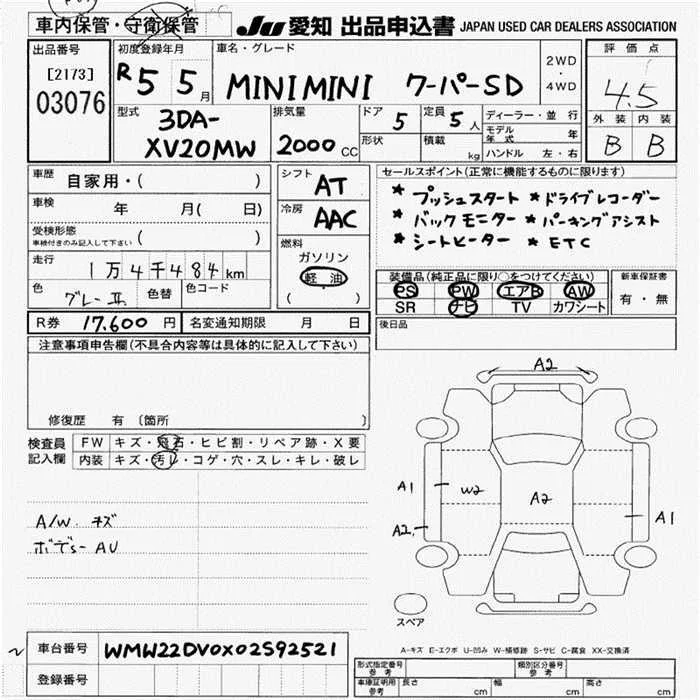 車内保管・守衛保管
JU 愛知 出品申込書 JAPAN USED CAR DEALERS ASSOCIATION
出品番号 初度登録年月 車名・グレード 2WD ・ 4WD 評価点
[2173] R5 5月 MINI MINI クーパーSD 4.5
03076
型式 排気量 ドア 定員 ディーラー・並行 外装 内装
3DA-XV20MW 2000cc 5 5人 モデル年式 年 B B
形状 積載 kg ハンドル 左・右
車歴 自家用・( )
車検 年 月( 日)
受検形態 ( )
車検付きのみ記入して下さい
走行 1万4千484km
色 グレーⅢ 色替 色コード
シフト AT
冷房 AAC
燃料
ガソリン
軽油
( )
セールスポイント(正常に機能するものに限ります)
* プッシュスタート * ドライブレコーダー
* バックモニター * パーキングアシスト
* シートヒーター * ETC
装備品(純正品に限り○をつけてください) 新車保証書
PS PW エアB AW 有・無
SR ナビ TV カワシート
R券 17,600円 名変通知期限 月 日
後日品
注意事項申告欄(不具合内容等は具体的に記入して下さい)
修復歴 有 〔箇所 〕
検査員記入欄 FW キズ・飛石・ヒビ割・リペア跡・X要
内装 キズ・汚レ・コゲ・穴・スレ・キレ・破レ
A/W. キズ
ボデS- AU
A2
A1 W2 A2 A1
A2.
スペア
A-キズ E-エクボ U-凹み W-補修跡 S-サビ C-腐食 XX-交換済
車台番号 WMW22DV0X02S92521
登録番号
形式指定番号 参考 類別区分番号 参考
車庫証明用 参考 長さ cm 幅 cm 高さ cm